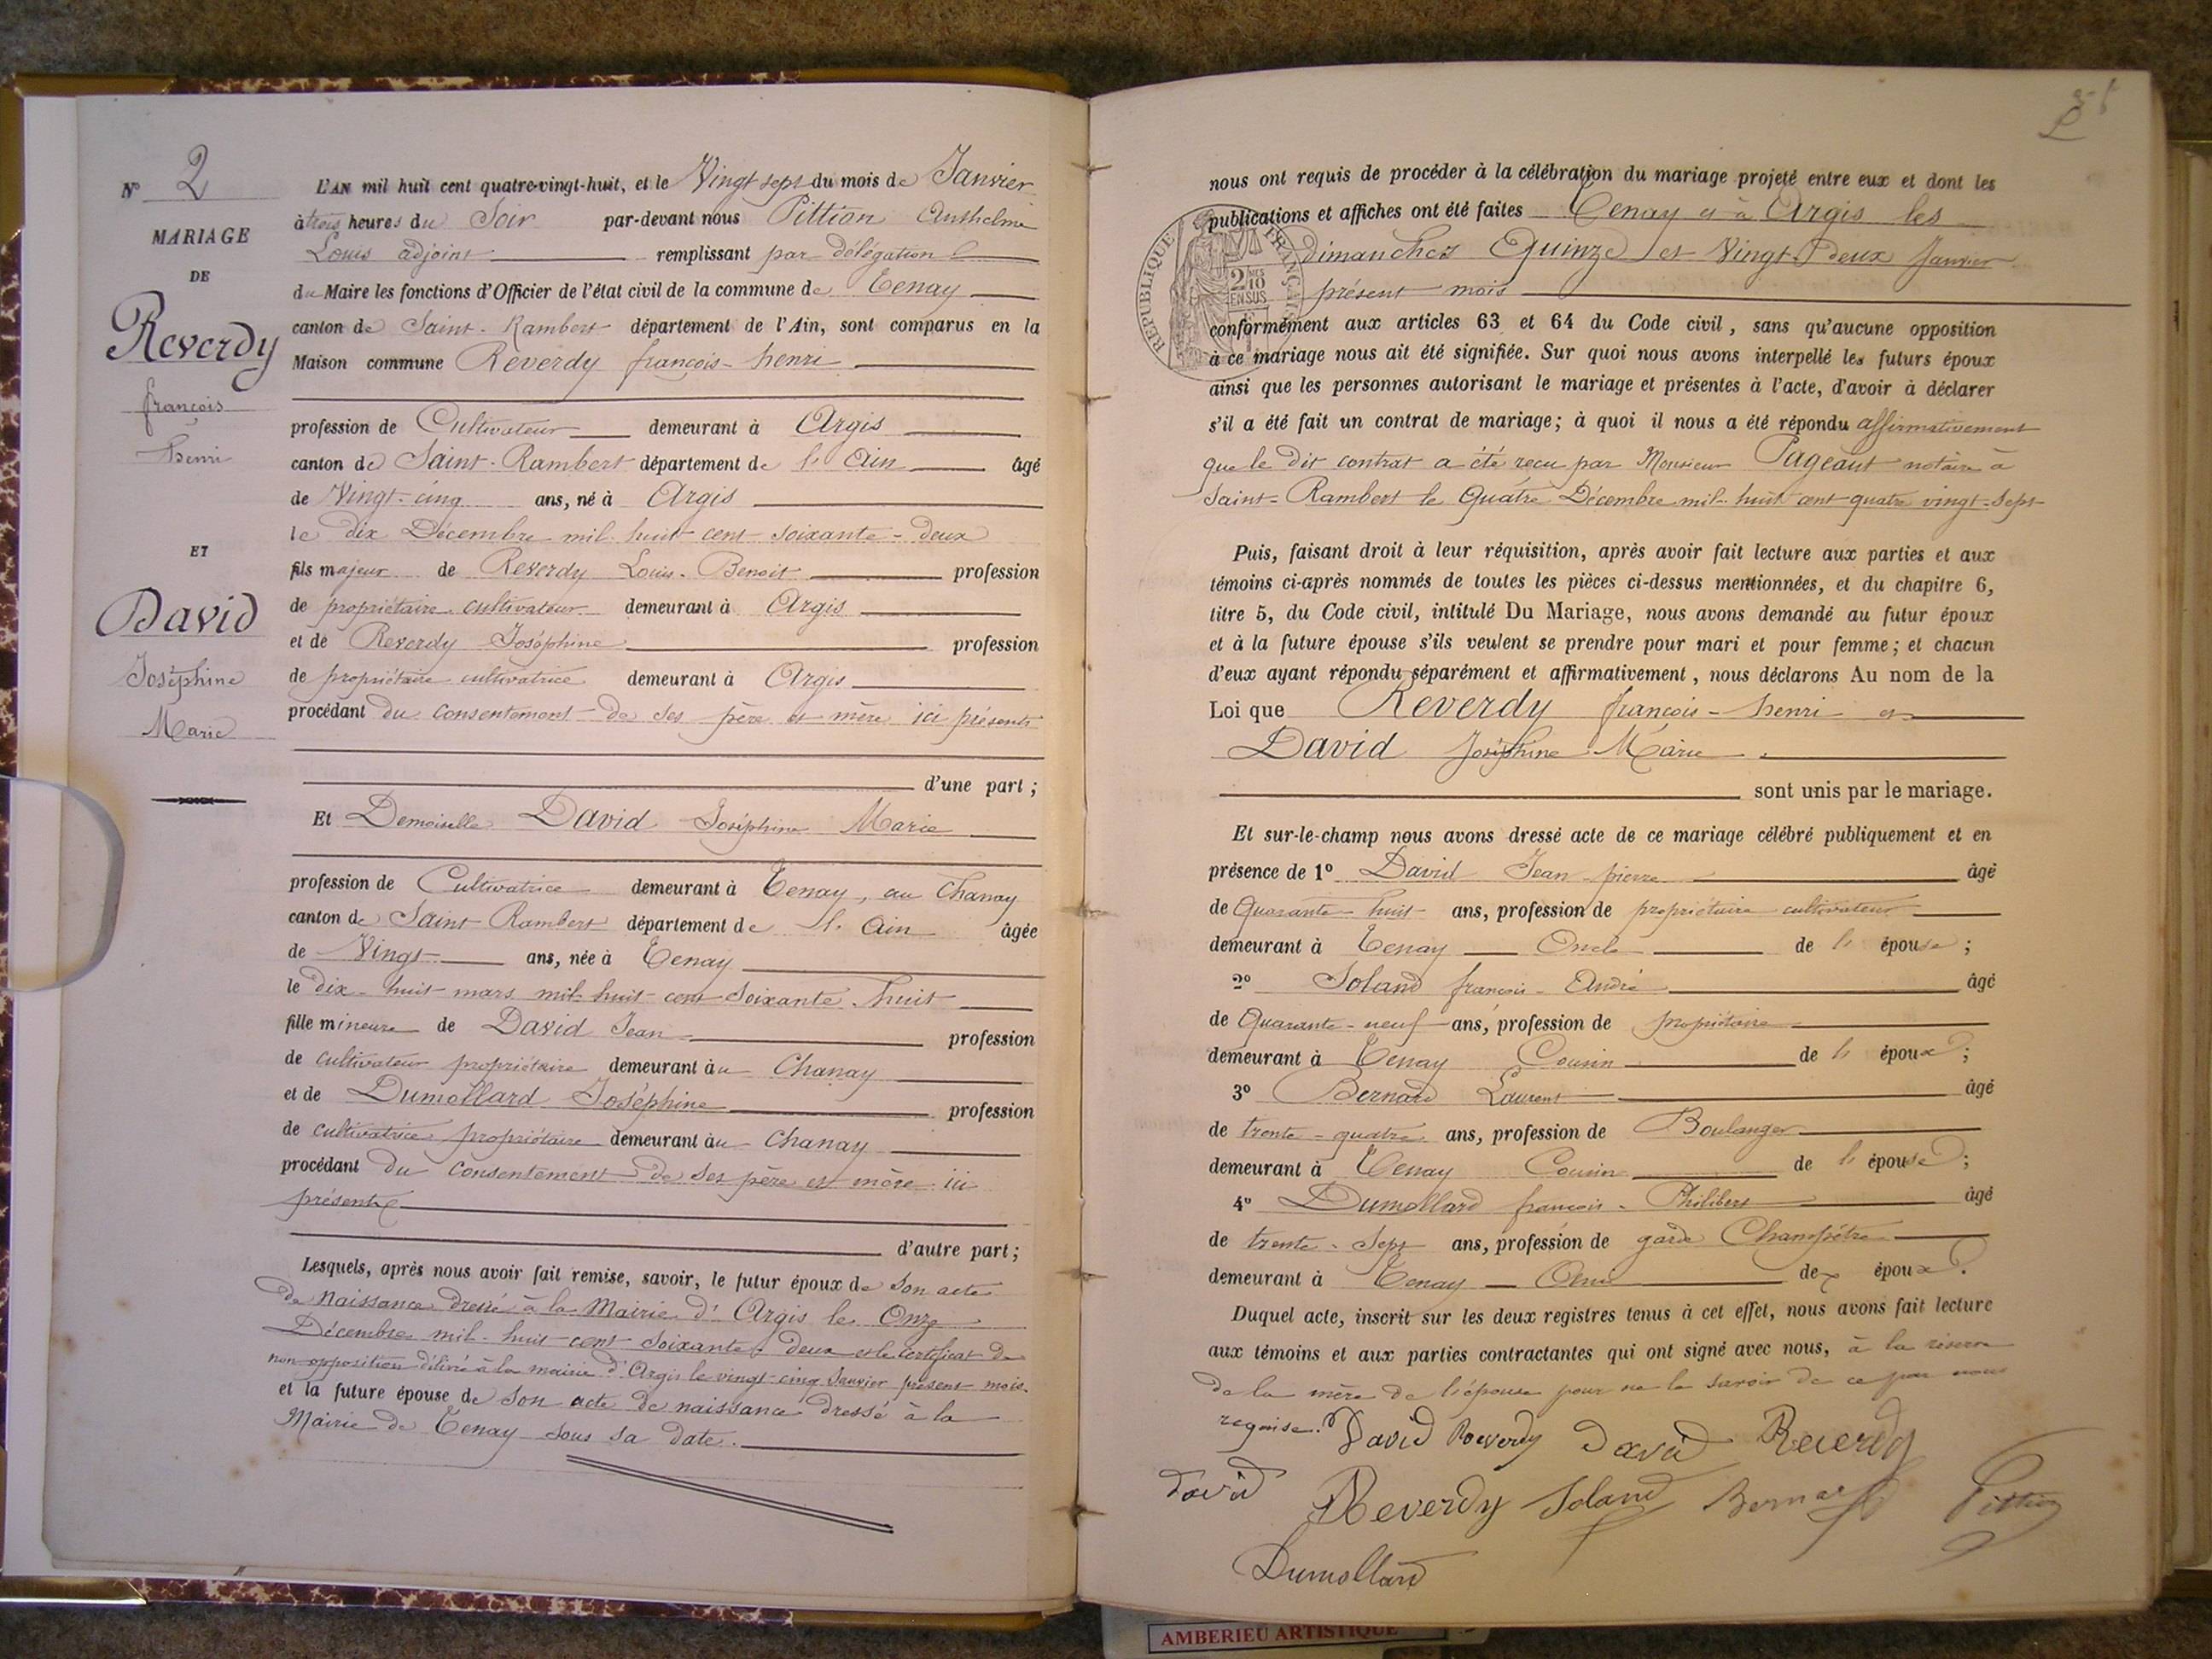 N° 2
MARIAGE
DE
Reverdy
françois
henri
ET
David
Joséphine
Marie
L'AN mil huit cent quatre-vingt-huit, et le Vingt sept du mois de Janvier
à trois heures du Soir par-devant nous Pittion Anthelme
Louis adjoint remplissant par délégation
du Maire les fonctions d'Officier de l'état civil de la commune de Tenay
canton de Saint-Rambert département de l'Ain, sont comparus en la
Maison commune Reverdy françois-henri
profession de Cultivateur demeurant à Argis
canton de Saint-Rambert département de l'Ain âgé
de Vingt-cinq ans, né à Argis
le dix Décembre mil huit cent soixante-deux
fils majeur de Reverdy Louis-Benoit profession
de propriétaire cultivateur demeurant à Argis
et de Reverdy Joséphine profession
de propriétaire cultivatrice demeurant à Argis
procédant du consentement de ses père et mère ici présents
d'une part ;
Et Demoiselle David Joséphine Marie
profession de Cultivatrice demeurant à Tenay, au Chanay
canton de Saint Rambert département de l'Ain âgée
de Vingt ans, née à Tenay
le dix-huit mars mil huit cent soixante-huit
fille mineure de David Jean profession
de cultivateur propriétaire demeurant au Chanay
et de Dumollard Joséphine profession
de cultivatrice propriétaire demeurant au Chanay
procédant du consentement de ses père et mère ici
présents
d'autre part ;
Lesquels, après nous avoir fait remise, savoir, le futur époux de son acte
de naissance dressé à la Mairie d'Argis le Onze
Décembre mil huit cent soixante-deux et le certificat de
non opposition délivré à la mairie d'Argis le vingt-cinq Janvier présent mois.
et la future épouse de son acte de naissance dressé à la
Mairie de Tenay sous sa date.
nous ont requis de procéder à la célébration du mariage projeté entre eux et dont les
publications et affiches ont été faites Tenay et à Argis les
dimanches Quinze et Vingt-deux Janvier
présent mois
REPUBLIQUE FRANÇAISE
2/10 EN SUS
conformément aux articles 63 et 64 du Code civil, sans qu'aucune opposition
à ce mariage nous ait été signifiée. Sur quoi nous avons interpellé les futurs époux
ainsi que les personnes autorisant le mariage et présentes à l'acte, d'avoir à déclarer
s'il a été fait un contrat de mariage ; à quoi il nous a été répondu affirmativement
que le dit contrat a été reçu par Monsieur Pageaut notaire à
Saint-Rambert le Quatre Décembre mil huit cent quatre vingt-sept
Puis, faisant droit à leur réquisition, après avoir fait lecture aux parties et aux
témoins ci-après nommés de toutes les pièces ci-dessus mentionnées, et du chapitre 6,
titre 5, du Code civil, intitulé Du Mariage, nous avons demandé au futur époux
et à la future épouse s'ils veulent se prendre pour mari et pour femme ; et chacun
d'eux ayant répondu séparément et affirmativement, nous déclarons Au nom de la
Loi que Reverdy françois-henri et
David Joséphine Marie
sont unis par le mariage.
Et sur-le-champ nous avons dressé acte de ce mariage célébré publiquement et en
présence de 1° David Jean-pierre âgé
de Quarante-huit ans, profession de propriétaire cultivateur
demeurant à Tenay Oncle de l'épouse ;
2° Soland françois-André âgé
de Quarante-neuf ans, profession de propriétaire
demeurant à Tenay Cousin de l'époux ;
3° Bernard Laurent âgé
de trente-quatre ans, profession de Boulanger
demeurant à Tenay Cousin de l'épouse ;
4° Dumollard françois-Philibert âgé
de trente-sept ans, profession de garde Champêtre
demeurant à Tenay Ami de époux.
Duquel acte, inscrit sur les deux registres tenus à cet effet, nous avons fait lecture
aux témoins et aux parties contractantes qui ont signé avec nous, à la réserve
de la mère de l'épouse pour ne le savoir de ce par nous
requise. David Reverdy David Reverdy
David Reverdy Soland Bernard Pittion
Dumollard
AMBERIEU ARTISTIQUE